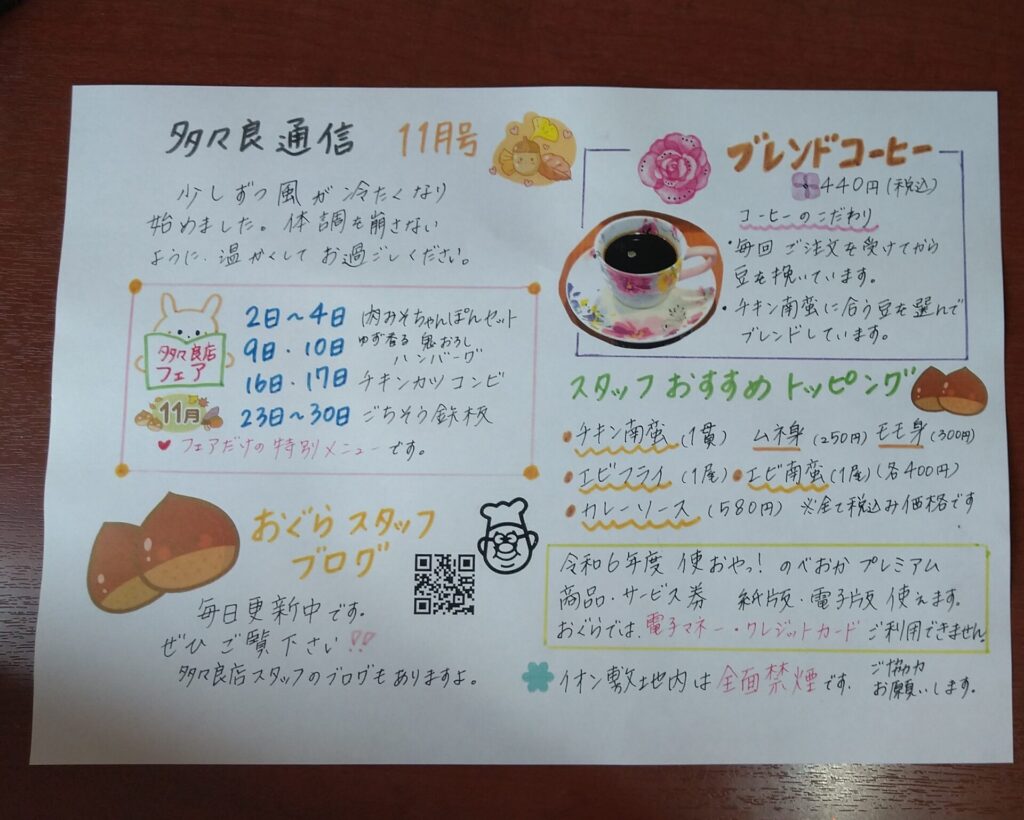 多々良通信 11月号
少しずつ風が冷たくなり
始めました。体調を崩さない
ように、温かくしてお過ごしください。
多々良店
フェア
11月
2日〜4日 肉みそちゃんぽんセット
9日・10日 ゆず香る 鬼おろし
ハンバーグ
16日・17日 チキンカツコンビ
23日〜30日 ごちそう鉄板
フェアだけの特別メニューです。
おぐらスタッフ
ブログ
毎日更新中です。
ぜひご覧下さい!!
多々良店スタッフのブログもありますよ。
ブレンドコーヒー
440円(税込)
コーヒーのこだわり
・毎回ご注文を受けてから
豆を挽いています。
・チキン南蛮に合う豆を選んで
ブレンドしています。
スタッフおすすめトッピング
・チキン南蛮(1貫) ムネ身(250円) モモ身(300円)
・エビフライ(1尾)・エビ南蛮(1尾)(各400円)
・カレーソース(580円) ※全て税込み価格です
令和6年度 使おやっ! のべおかプレミアム
商品・サービス券 紙版・電子版使えます。
おぐらでは、電子マネー・クレジットカードご利用できません。
イオン敷地内は全面禁煙です。 ご協力
お願いします。